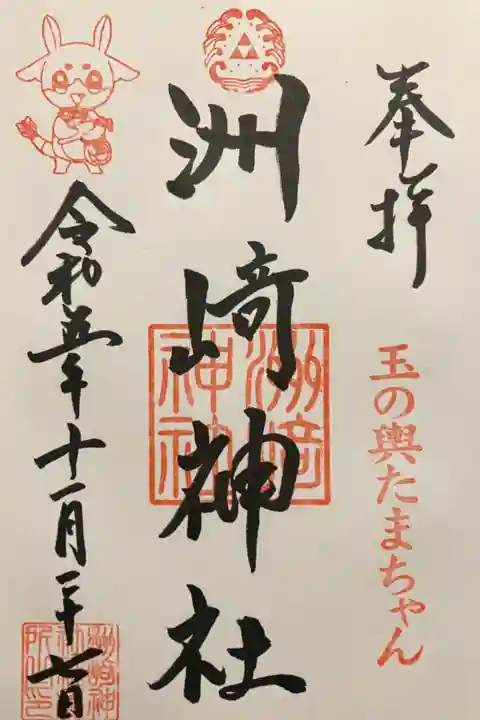 奉拝
玉の輿たまちゃん
洲崎神社
洲崎神社
令和五年十一月二十七日